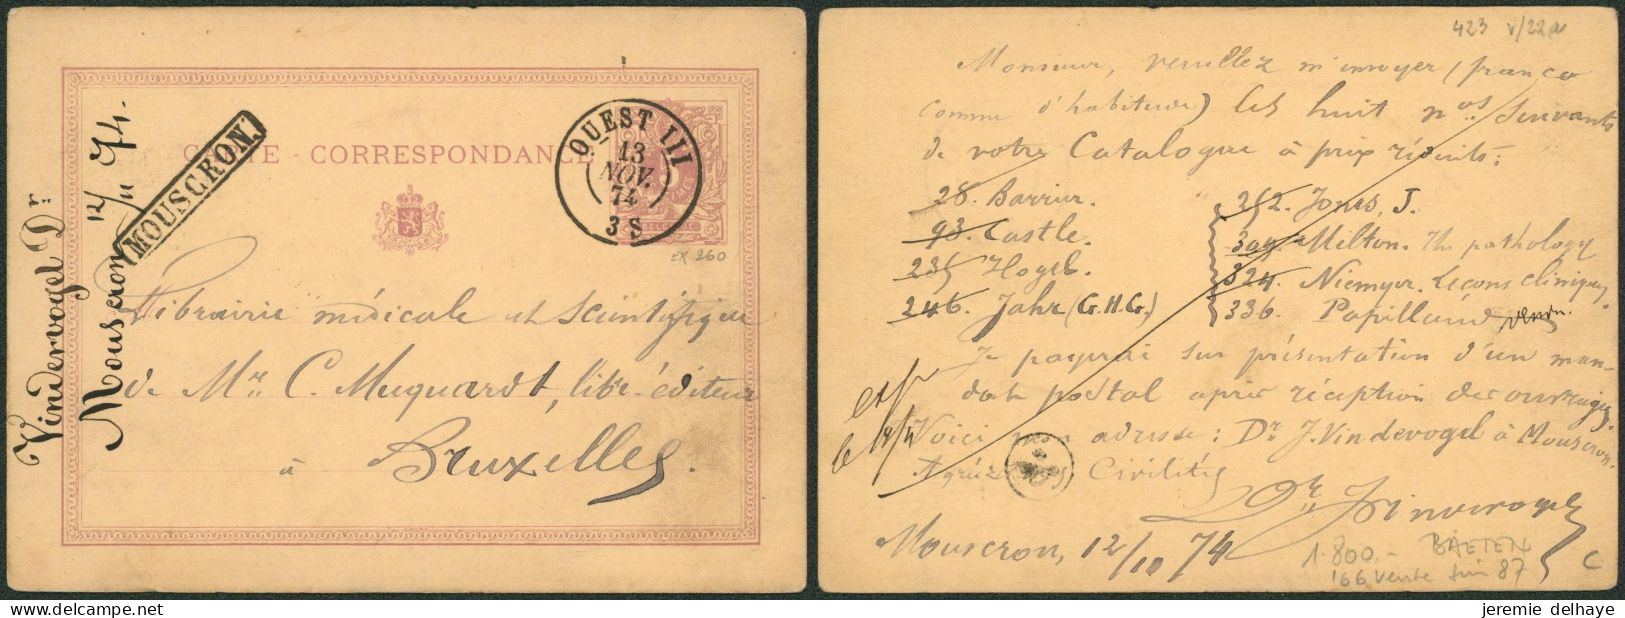 CARTE - CORRESPONDANCE
OUEST III
13
NOV.
74
3 S
BELGIQUE
EX 260
MOUSCRON.
Vindervogel Dr
Mouscron 12/11 74.
Librairie médicale et scientifique
de Mr. C. Muquardt, libr. éditeur
à Bruxelles.
423 V/22a
Monsieur, veuillez m'envoyer (franco
comme d'habitude) les huit nos. suivants
de votre Catalogue à prix réduits:
28. Barrier.
93. Castle.
235 Hogel.
246. Jahr (G.H.G.)
252. Jones, J.
309. Milton. The pathology
324. Niemyer. Leçons cliniques.
336. Papillaud
Je payerai sur présentation d'un man-
dat postal après réception des ouvrages.
Voici mon adresse: Dr J. Vindevogel à Mouscron.
Agréez mes Civilités
Dr J. Vindevogel
Mouscron, 12/10 74
exp
1.800.- BAETEN
166 Vente 87
C
jeremie delhaye